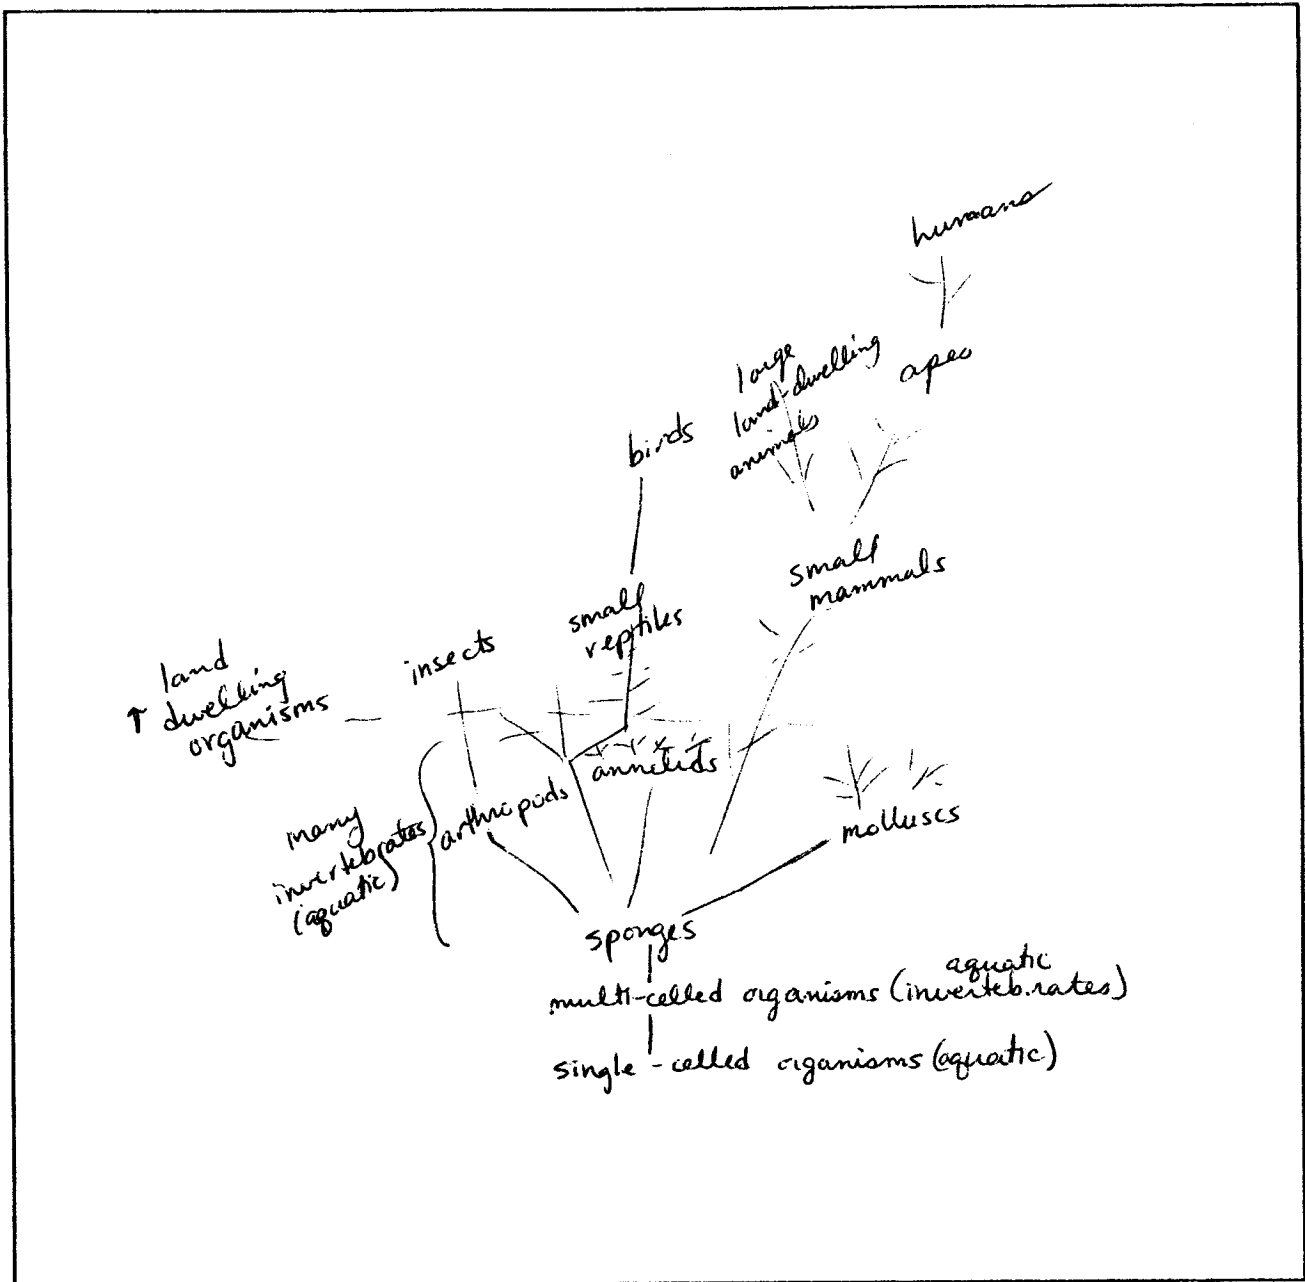 humans
apes
large
land-dwelling
animals
birds
small
mammals
small
reptiles
insects
↑ land
dwelling
organisms
annelids
arthropods
many
invertebrates
(aquatic)
molluscs
sponges
aquatic
multi-celled organisms (invertebrates)
single-celled organisms (aquatic)